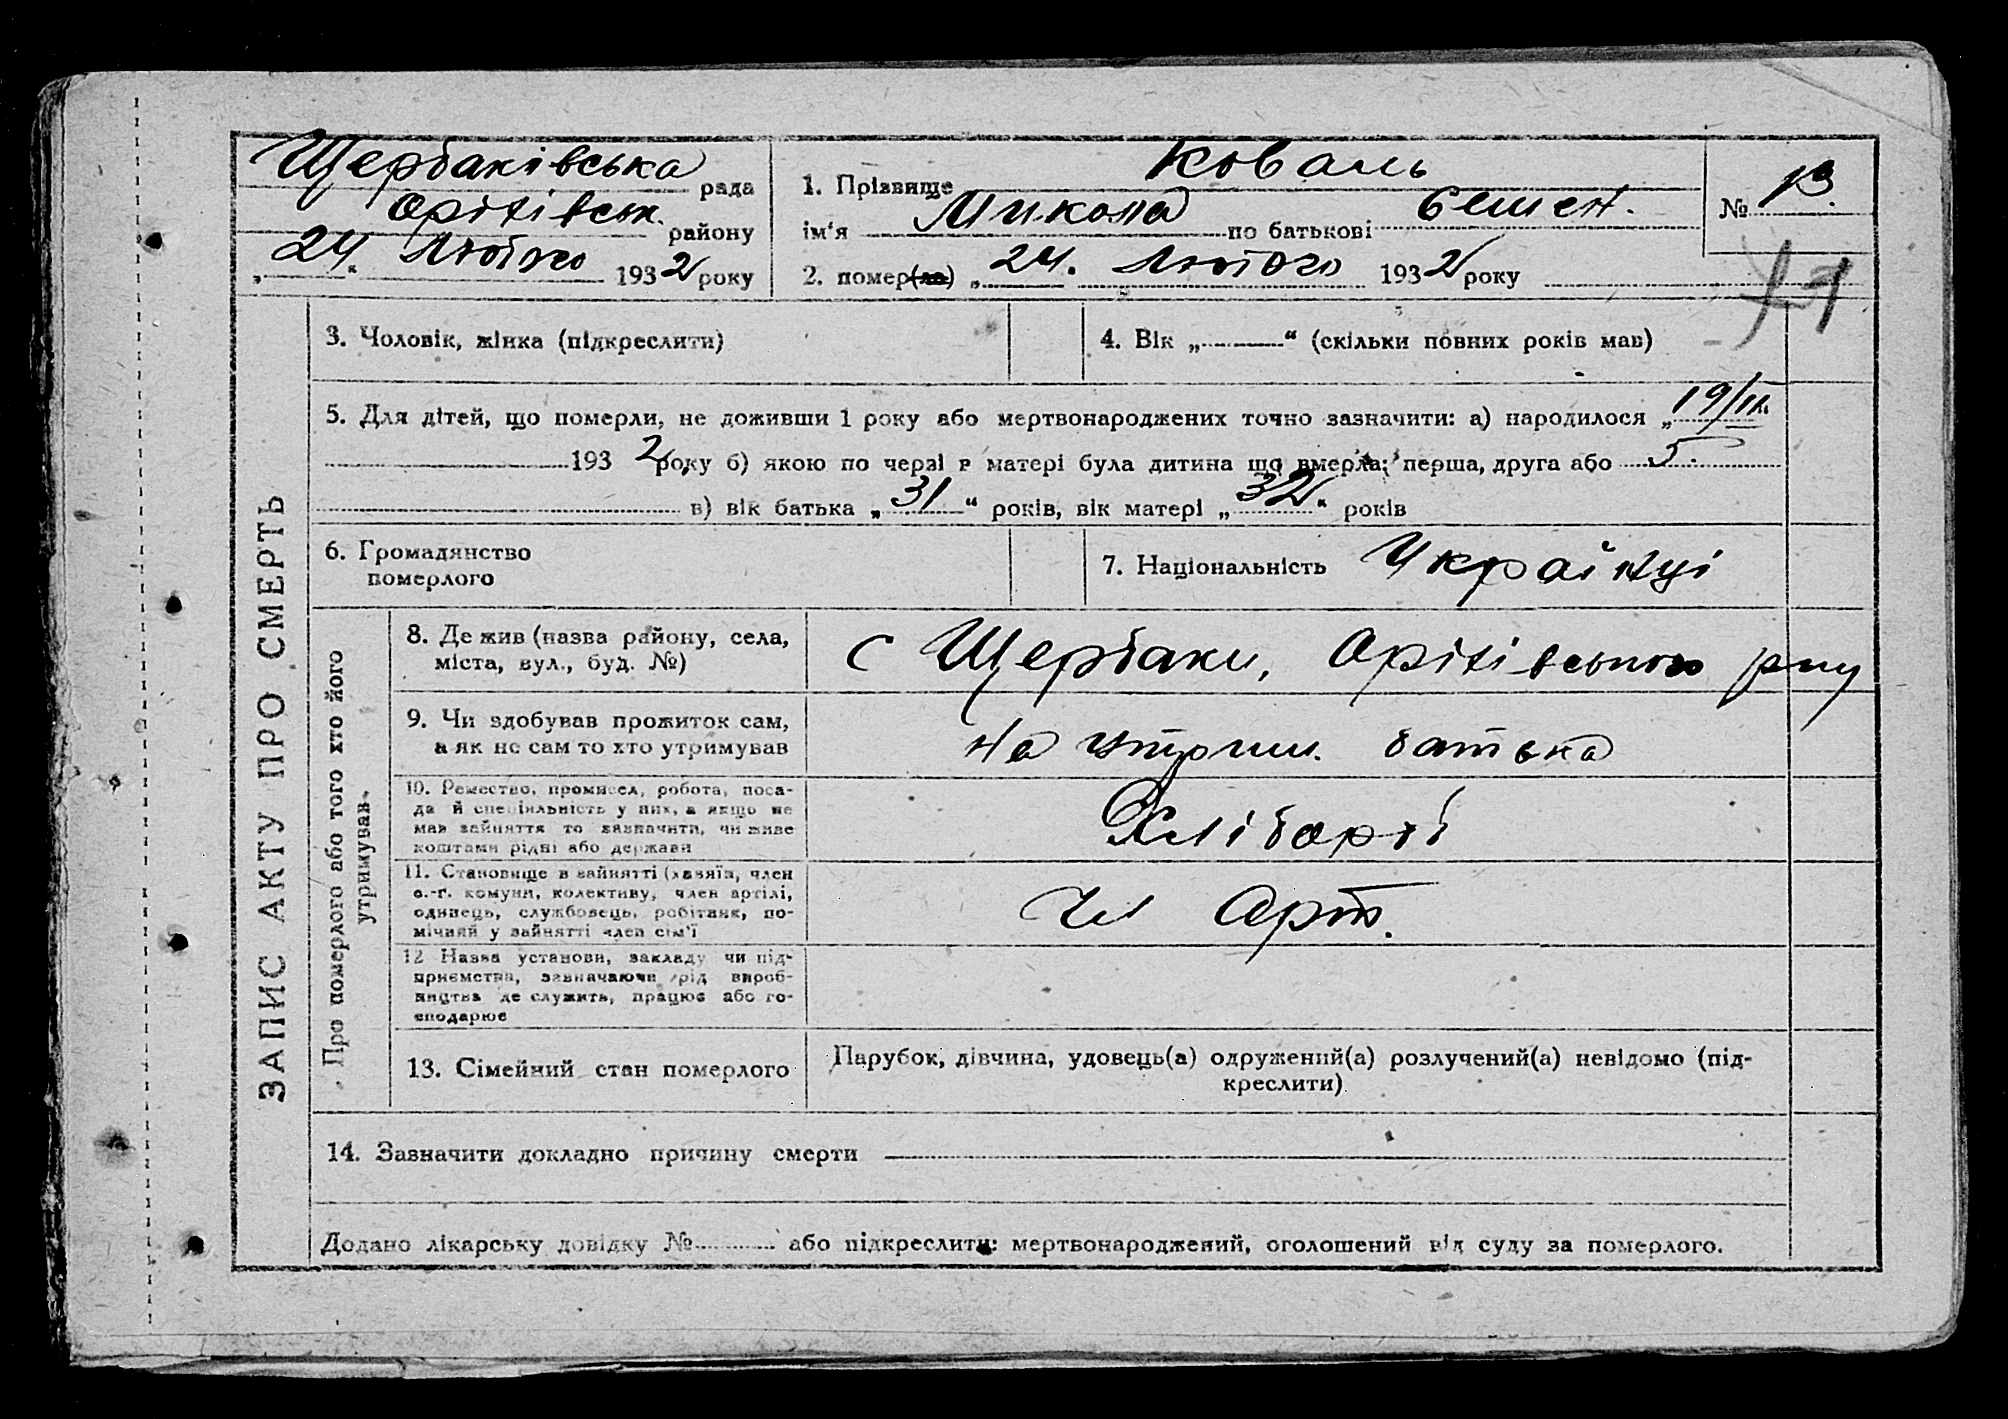 Щербаківська рада
Оріхівськ. району
„24“ Лютого 1932 року
1. Прізвище Коваль
ім'я Микола по батькові Семен.
2. помер(ла) „24. Лютого 1932 року
№ 13.
3. Чоловік, жінка (підкреслити)
4. Вік „ “ (скільки повних років мав)
5. Для дітей, що померли, не доживши 1 року або мертвонароджених точно зазначити: а) народилося „19/II
1932 року б) якою по черзі в матері була дитина що вмерла; перша, друга або 5.
в) вік батька „31“ років, вік матері „32“ років
6. Громадянство
померлого
7. Національність Українці
ЗАПИС АКТУ ПРО СМЕРТЬ
Про померлого або того хто його
утримував.
8. Де жив (назва району, села,
міста, вул., буд. №)
с Щербаки, Оріхівського р-ну
9. Чи здобував прожиток сам,
а як не сам то хто утримував
На утрим. батька
10. Ремество, промисел, робота, поса-
да й спеціяльність у них, а якщо не
мав зайняття то зазначити, чи живе
коштами рідні або держави
Хлібороб
11. Становище в зайнятті (хазяїн, член
с.-г. комуни, колективу, член артілі,
одинець, службовець, робітник, по-
мічний у зайнятті член сім'ї
Чл Арт.
12 Назва установи, закладу чи під-
приємства, зазначаючи рід вироб-
ництва де служить, працює або го-
сподарює
13. Сімейний стан померлого
Парубок, дівчина, удовець(а) одружений(а) розлучений(а) невідомо (під-
креслити)
14. Зазначити докладно причину смерти
Додано лікарську довідку № або підкреслити: мертвонароджений, оголошений від суду за померлого.